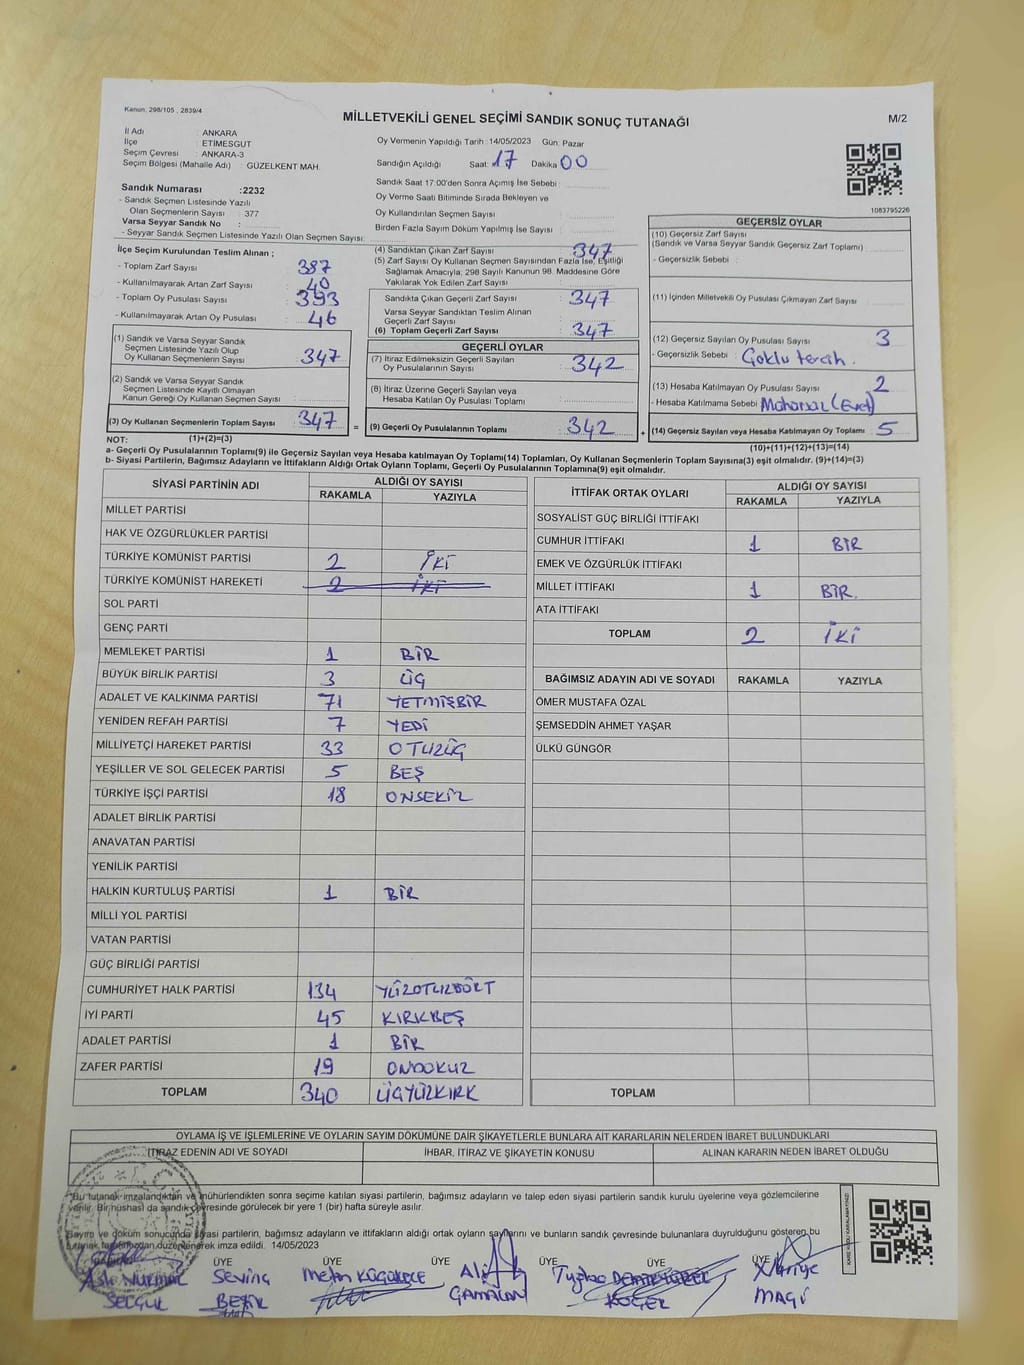 Kanun, 298/105 , 2839/4
MİLLETVEKİLİ GENEL SEÇİMİ SANDIK SONUÇ TUTANAĞI
M/2
İl Adı : ANKARA
İlçe : ETİMESGUT
Seçim Çevresi : ANKARA-3
Seçim Bölgesi (Mahalle Adı) : GÜZELKENT MAH.
Sandık Numarası :2232
- Sandık Seçmen Listesinde Yazılı
Olan Seçmenlerin Sayısı : 377
Varsa Seyyar Sandık No :
- Seyyar Sandık Seçmen Listesinde Yazılı Olan Seçmen Sayısı:
Oy Vermenin Yapıldığı Tarih :14/05/2023 Gün: Pazar
Sandığın Açıldığı Saat: 17 Dakika 00
Sandık Saat 17:00'den Sonra Açılmış İse Sebebi :
Oy Verme Saati Bitiminde Sırada Bekleyen ve
Oy Kullandırılan Seçmen Sayısı
Birden Fazla Sayım Döküm Yapılmış İse Sayısı :
1083795226
İlçe Seçim Kurulundan Teslim Alınan ;
- Toplam Zarf Sayısı : 387
- Kullanılmayarak Artan Zarf Sayısı : 40
- Toplam Oy Pusulası Sayısı : 393
- Kullanılmayarak Artan Oy Pusulası : 46
(1) Sandık ve Varsa Seyyar Sandık
Seçmen Listesinde Yazılı Olup
Oy Kullanan Seçmenlerin Sayısı : 347
(2) Sandık ve Varsa Seyyar Sandık
Seçmen Listesinde Kayıtlı Olmayan
Kanun Gereği Oy Kullanan Seçmen Sayısı :
(3) Oy Kullanan Seçmenlerin Toplam Sayısı : 347
(4) Sandıktan Çıkan Zarf Sayısı : 347
(5) Zarf Sayısı, Oy Kullanan Seçmen Sayısından Fazla İse, Eşitliği
Sağlamak Amacıyla, 298 Sayılı Kanunun 98. Maddesine Göre
Yakılarak Yok Edilen Zarf Sayısı :
Sandıkta Çıkan Geçerli Zarf Sayısı : 347
Varsa Seyyar Sandıktan Teslim Alınan
Geçerli Zarf Sayısı :
(6) Toplam Geçerli Zarf Sayısı : 347
GEÇERLİ OYLAR
(7) İtiraz Edilmeksizin Geçerli Sayılan
Oy Pusulalarının Sayısı : 342
(8) İtiraz Üzerine Geçerli Sayılan veya
Hesaba Katılan Oy Pusulası Toplamı :
= (9) Geçerli Oy Pusulalarının Toplamı : 342
GEÇERSİZ OYLAR
(10) Geçersiz Zarf Sayısı
(Sandık ve Varsa Seyyar Sandık Geçersiz Zarf Toplamı) :
- Geçersizlik Sebebi :
(11) İçinden Milletvekili Oy Pusulası Çıkmayan Zarf Sayısı :
(12) Geçersiz Sayılan Oy Pusulası Sayısı : 3
- Geçersizlik Sebebi : Çoklu tercih.
(13) Hesaba Katılmayan Oy Pusulası Sayısı : 2
- Hesaba Katılmama Sebebi : (Evet)
+ (14) Geçersiz Sayılan veya Hesaba Katılmayan Oy Toplamı : 5
NOT: (1)+(2)=(3) (10)+(11)+(12)+(13)=(14)
a- Geçerli Oy Pusulalarının Toplamı(9) ile Geçersiz Sayılan veya Hesaba katılmayan Oy Toplamı(14) Toplamları, Oy Kullanan Seçmenlerin Toplam Sayısına(3) eşit olmalıdır. (9)+(14)=(3)
b- Siyasi Partilerin, Bağımsız Adayların ve İttifakların Aldığı Ortak Oyların Toplamı, Geçerli Oy Pusulalarının Toplamına(9) eşit olmalıdır.
SİYASİ PARTİNİN ADI ALDIĞI OY SAYISI
RAKAMLA YAZIYLA
MİLLET PARTİSİ
HAK VE ÖZGÜRLÜKLER PARTİSİ
TÜRKİYE KOMÜNİST PARTİSİ 2 İKİ
TÜRKİYE KOMÜNİST HAREKETİ 2 İKİ
SOL PARTİ
GENÇ PARTİ
MEMLEKET PARTİSİ 1 BİR
BÜYÜK BİRLİK PARTİSİ 3 ÜÇ
ADALET VE KALKINMA PARTİSİ 71 YETMİŞBİR
YENİDEN REFAH PARTİSİ 7 YEDİ
MİLLİYETÇİ HAREKET PARTİSİ 33 OTUZÜÇ
YEŞİLLER VE SOL GELECEK PARTİSİ 5 BEŞ
TÜRKİYE İŞÇİ PARTİSİ 18 ONSEKİZ
ADALET BİRLİK PARTİSİ
ANAVATAN PARTİSİ
YENİLİK PARTİSİ
HALKIN KURTULUŞ PARTİSİ 1 BİR
MİLLİ YOL PARTİSİ
VATAN PARTİSİ
GÜÇ BİRLİĞİ PARTİSİ
CUMHURİYET HALK PARTİSİ 134 YÜZOTUZDÖRT
İYİ PARTİ 45 KIRKBEŞ
ADALET PARTİSİ 1 BİR
ZAFER PARTİSİ 19 ONDOKUZ
TOPLAM 340 ÜÇYÜZKIRK
İTTİFAK ORTAK OYLARI ALDIĞI OY SAYISI
RAKAMLA YAZIYLA
SOSYALİST GÜÇ BİRLİĞİ İTTİFAKI
CUMHUR İTTİFAKI 1 BİR
EMEK VE ÖZGÜRLÜK İTTİFAKI
MİLLET İTTİFAKI 1 BİR.
ATA İTTİFAKI
TOPLAM 2 İKİ
BAĞIMSIZ ADAYIN ADI VE SOYADI RAKAMLA YAZIYLA
ÖMER MUSTAFA ÖZAL
ŞEMSEDDİN AHMET YAŞAR
ÜLKÜ GÜNGÖR
TOPLAM
OYLAMA İŞ VE İŞLEMLERİNE VE OYLARIN SAYIM DÖKÜMÜNE DAİR ŞİKAYETLERLE BUNLARA AİT KARARLARIN NELERDEN İBARET BULUNDUKLARI
İTİRAZ EDENİN ADI VE SOYADI İHBAR, İTİRAZ VE ŞİKAYETİN KONUSU ALINAN KARARIN NEDEN İBARET OLDUĞU
"Bu tutanak imzalandıktan ve mühürlendikten sonra seçime katılan siyasi partilerin, bağımsız adayların ve talep eden siyasi partilerin sandık kurulu üyelerine veya gözlemcilerine
verilir. Bir nüshası da sandık çevresinde görülecek bir yere 1 (bir) hafta süreyle asılır.
Sayım ve döküm sonucunda siyasi partilerin, bağımsız adayların ve ittifakların aldığı ortak oyların sayılarını ve bunların sandık çevresinde bulunanlara duyurulduğunu gösteren bu
tutanak tarafımızdan düzenlenerek imza edildi. 14/05/2023
ÜYE ÜYE ÜYE ÜYE ÜYE
Aslı NURMAL Sevinç Metin KÜÇÜKECE Ali
SELÇUK BEŞİK KOÇER
KARE KODU KARALAMAYINIZ